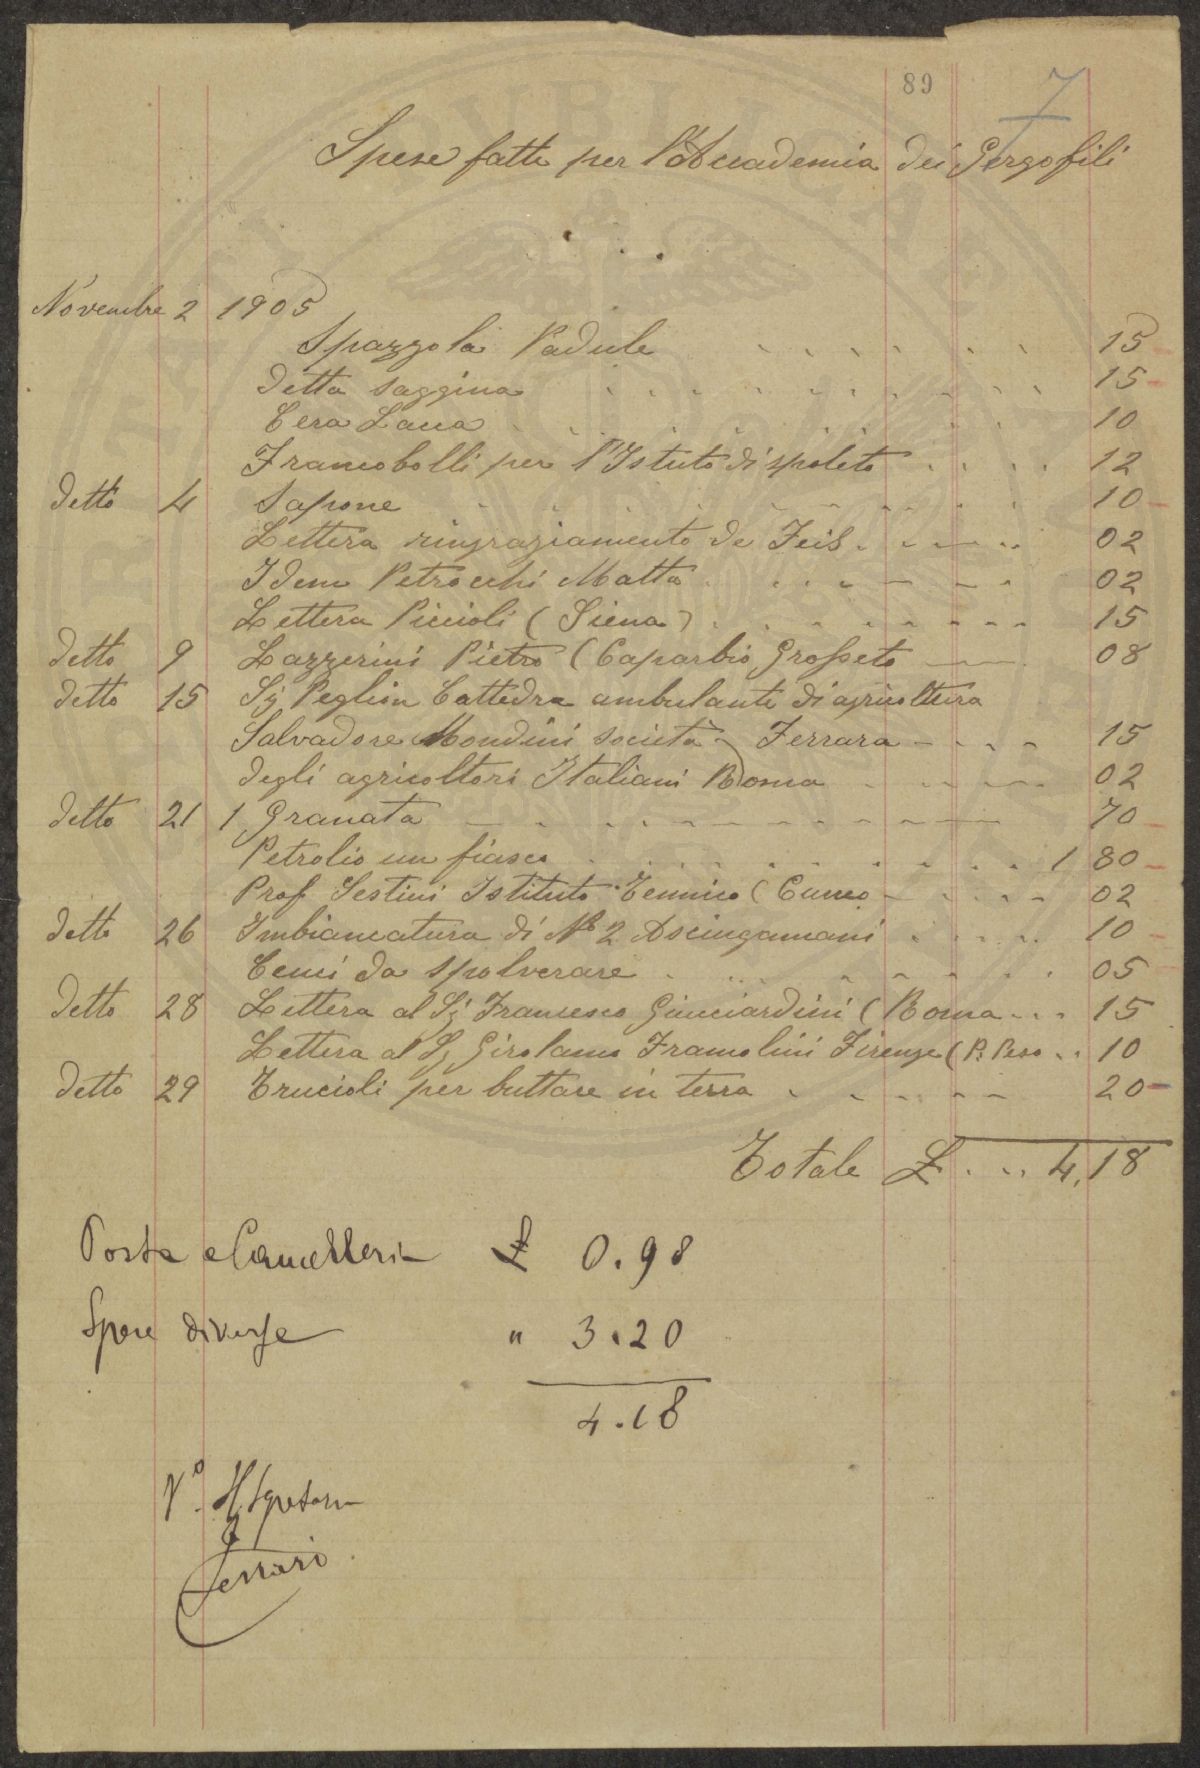 89
7
Spese fatte per l'Accademia dei Gergofili
Novembre 2 1905
Spazzola Padule 15
detta saggina 15
Cera Lacca 10
Francobolli per l'Istuto di Spoleto 12
detto 4 Sapone 10
Lettera ringraziamento de Feis 02
Idem Petrocchi Matta 02
Lettera Piccioli (Siena) 15
detto 9 Lazzerini Pietro (Caparbio Grosseto 08
detto 15 Sig Peglion Cattedra ambulante di agricoltura
Salvadore Mondini società Ferrara 15
degli agricoltori Italiani Roma 02
detto 21 1 Granata 70
Petrolio un fiasco 1 80
Prof Sestini Istituto Tennico (Cuneo 02
detto 26 Imbiancatura di No 2 Asciugamani 10
Cenci da spolverare 05
detto 28 Lettera al Sig Francesco Giucciardini (Roma 15
Lettera al Sig Girolamo Framolini Firenze (P. Peso 10
detto 29 Trucioli per buttare in terra 20
Totale £ 4,18
Posta e Cancelleria £ 0.98
Spese diverse " 3.20
4.18
Vo. Il Segretario
Ferrari